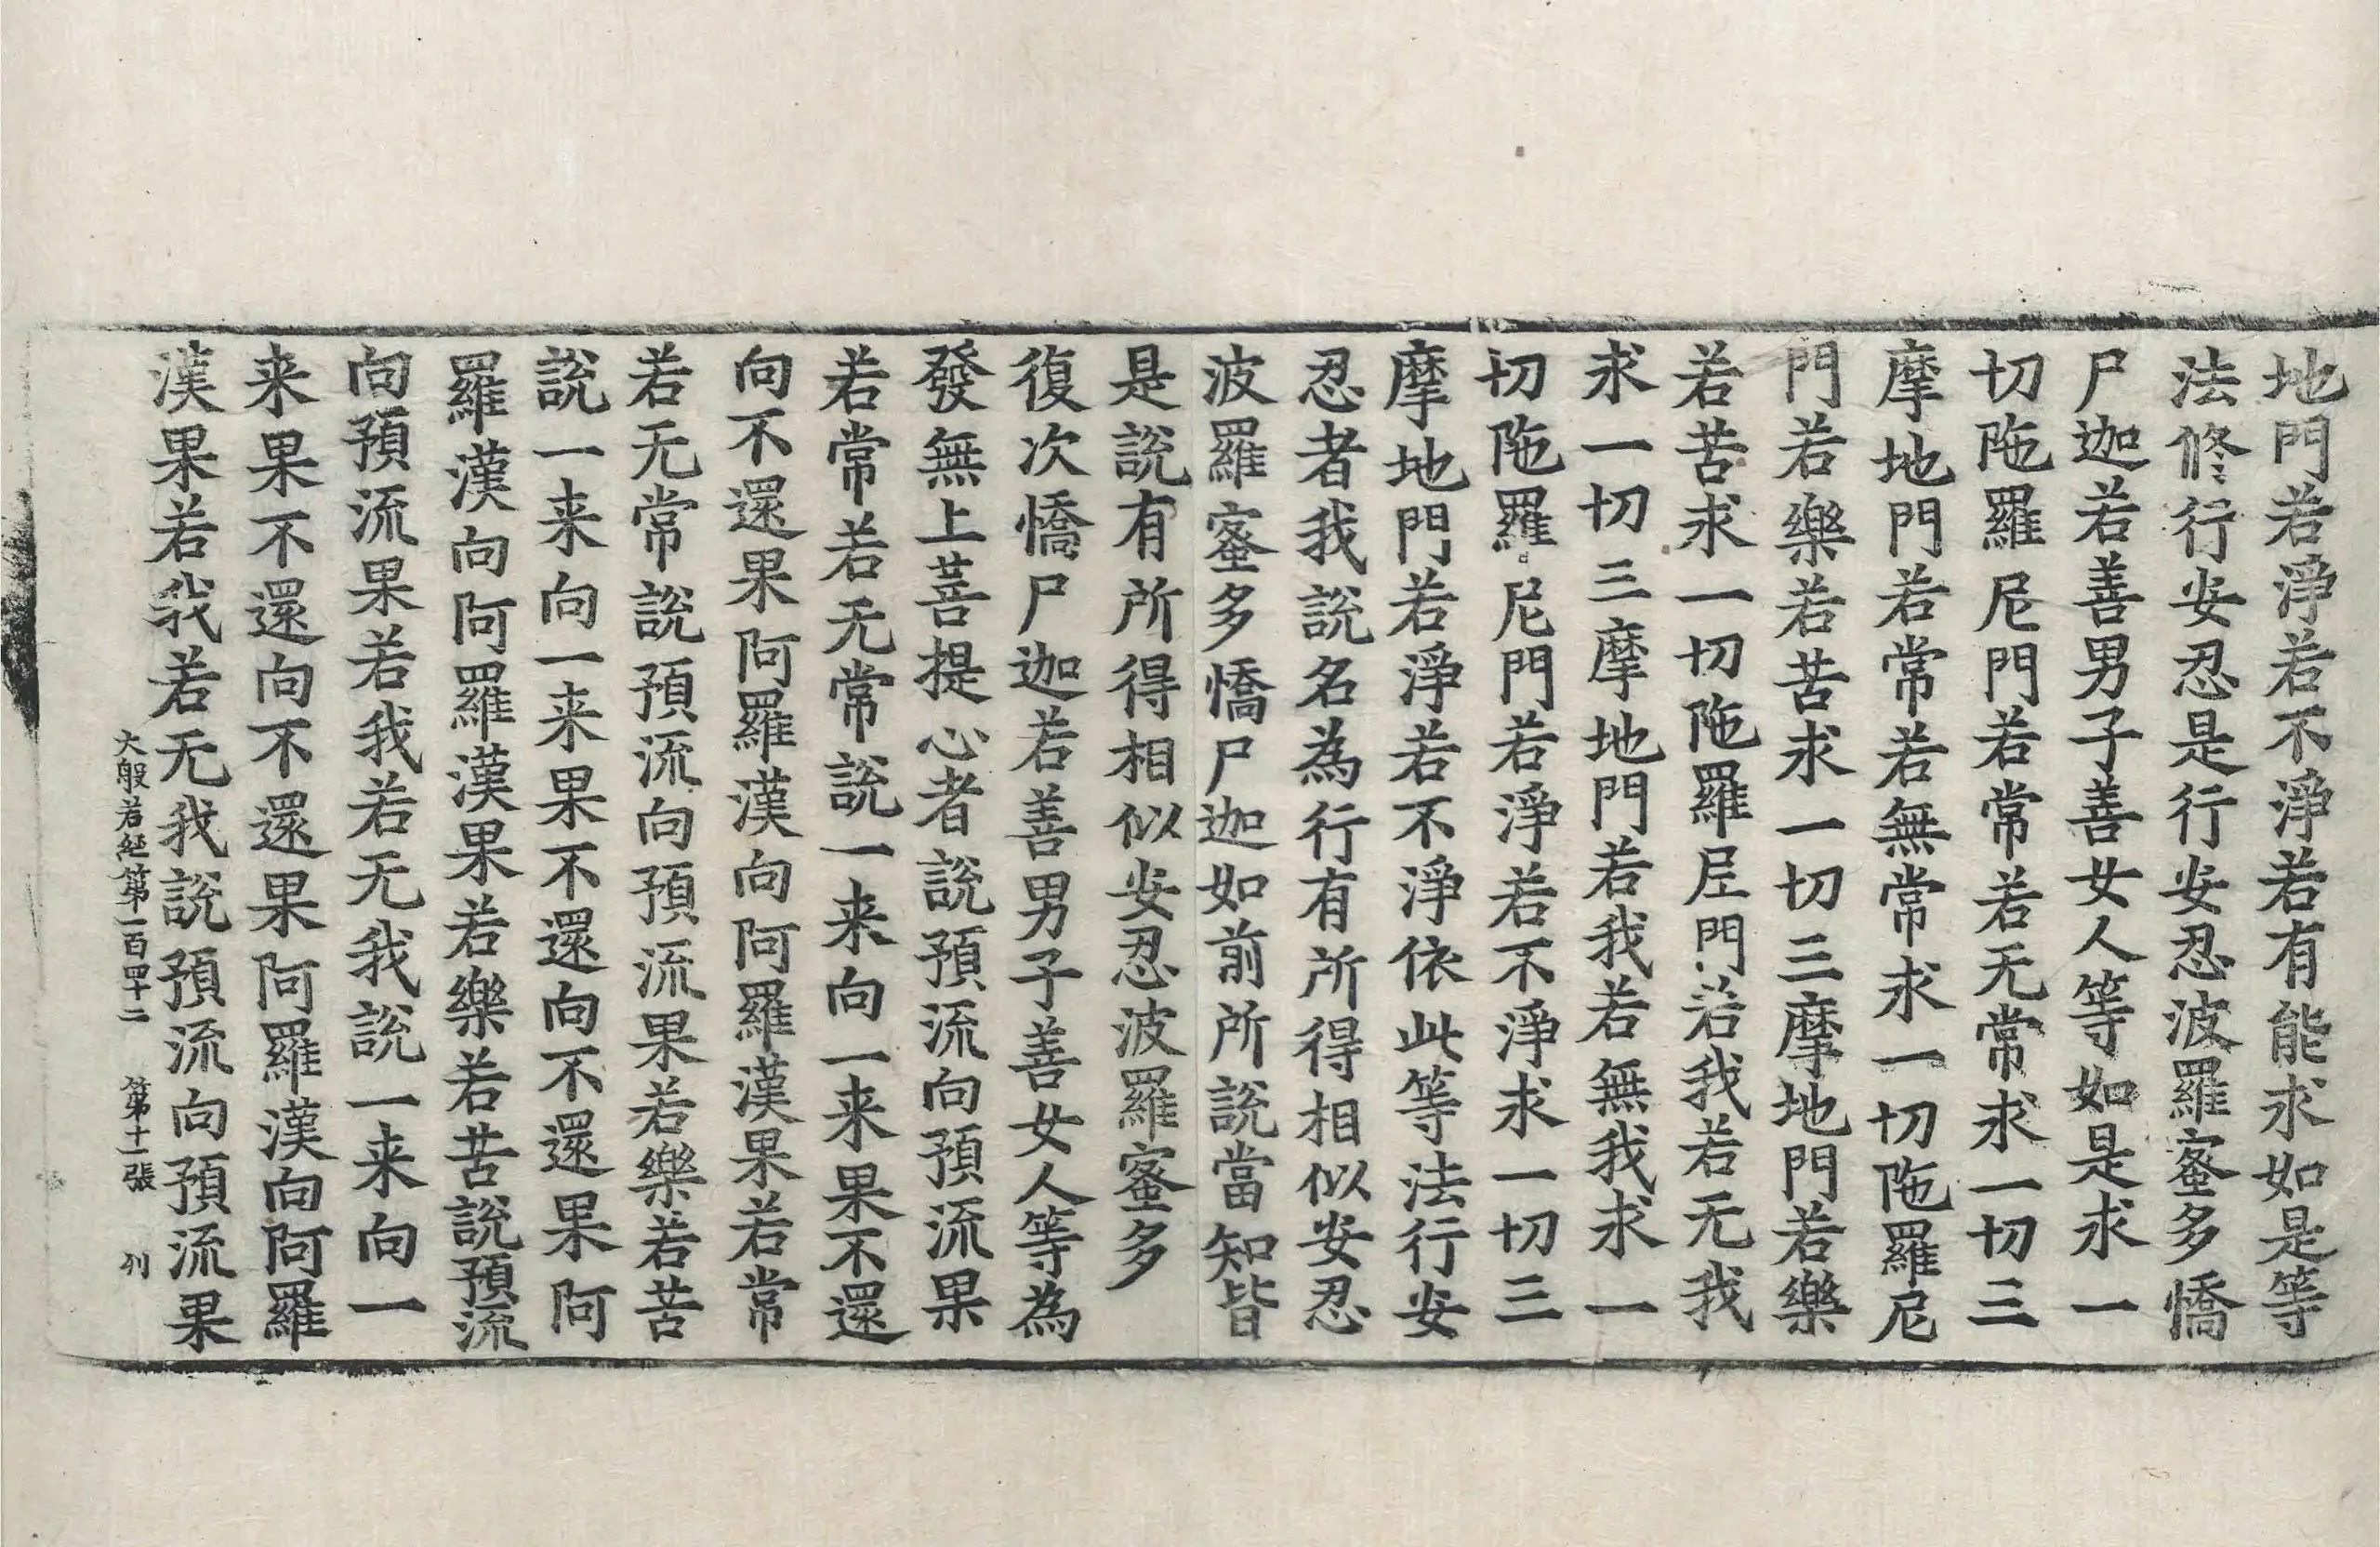 地門若淨若不淨若有能求如是等
法修行安忍是行安忍波羅蜜多憍
尸迦若善男子善女人等如是求一
切陁羅尼門若常若无常求一切三
摩地門若常若無常求一切陁羅尼
門若樂若苦求一切三摩地門若樂
若苦求一切陁羅尼門若我若无我
求一切三摩地門若我若無我求一
切陁羅尼門若淨若不淨求一切三
摩地門若淨若不淨依此等法行安
忍者我說名為行有所得相似安忍
波羅蜜多憍尸迦如前所說當知皆
是說有所得相似安忍波羅蜜多
復次憍尸迦若善男子善女人等為
發無上菩提心者說預流向預流果
若常若无常說一来向一来果不還
向不還果阿羅漢向阿羅漢果若常
若无常說預流向預流果若樂若苦
說一来向一来果不還向不還果阿
羅漢向阿羅漢果若樂若苦說預流
向預流果若我若无我說一来向一
来果不還向不還果阿羅漢向阿羅
漢果若我若无我說預流向預流果
大般若経第一百四十二 第十一張 刋